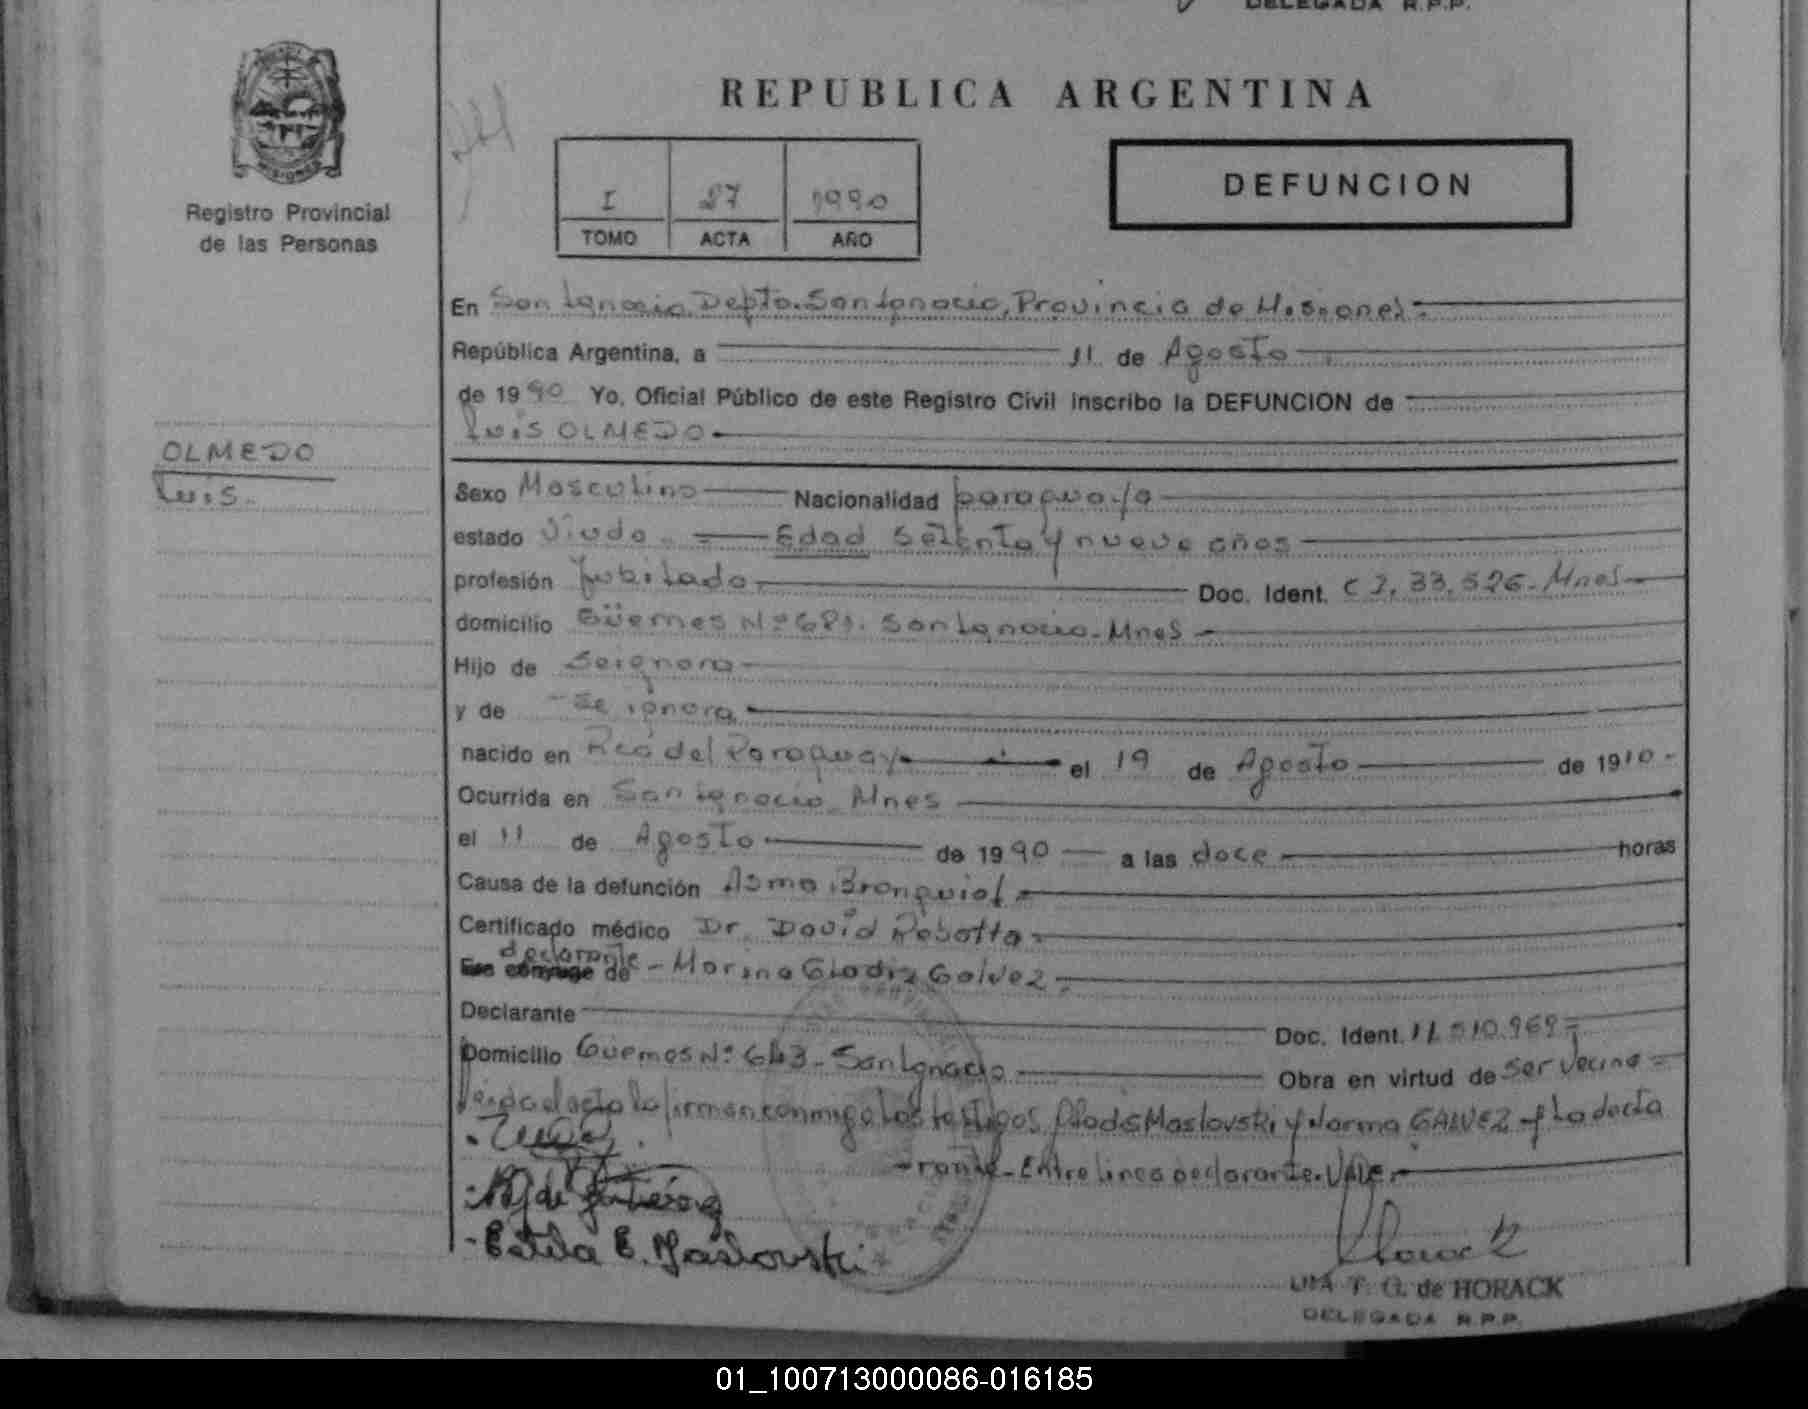 DELEGADA R.P.P.
REPUBLICA ARGENTINA
Registro Provincial
de las Personas
I 27 1990
TOMO ACTA AÑO
DEFUNCION
En San Ignacio, Depto. San Ignacio, Provincia de Misiones.
República Argentina, a 11 de Agosto
de 1990 Yo, Oficial Público de este Registro Civil inscribo la DEFUNCION de
Luis OLMEDO
OLMEDO
Luis.
Sexo Masculino Nacionalidad paraguaya
estado Viudo. = Edad Setenta y nueve años
profesión Jubilado Doc. Ident. C I. 33.526 - Mnes
domicilio Güemes Nº 681. San Ignacio - Mnes
Hijo de Se ignora
y de - Se ignora
nacido en Rca del Paraguay el 19 de Agosto de 1910 -
Ocurrida en San Ignacio Mnes
el 11 de Agosto de 1990 a las doce horas
Causa de la defunción Asma Bronquial
Certificado médico Dr. David Rebotta
declarante
de - Marina Gladiz Galvez
Declarante Doc. Ident. 11.510.969
Domicilio Guemes Nº 643 - San Ignacio Obra en virtud de ser vecina =
Leida el acta la firman conmigo los testigos Maslovski y Norma GALVEZ y la decla
rante - Entre linea declarante. Vale
Estela E. Maslovski
Horack
T. G. de HORACK
DELEGADA R.P.P.
01_100713000086-016185